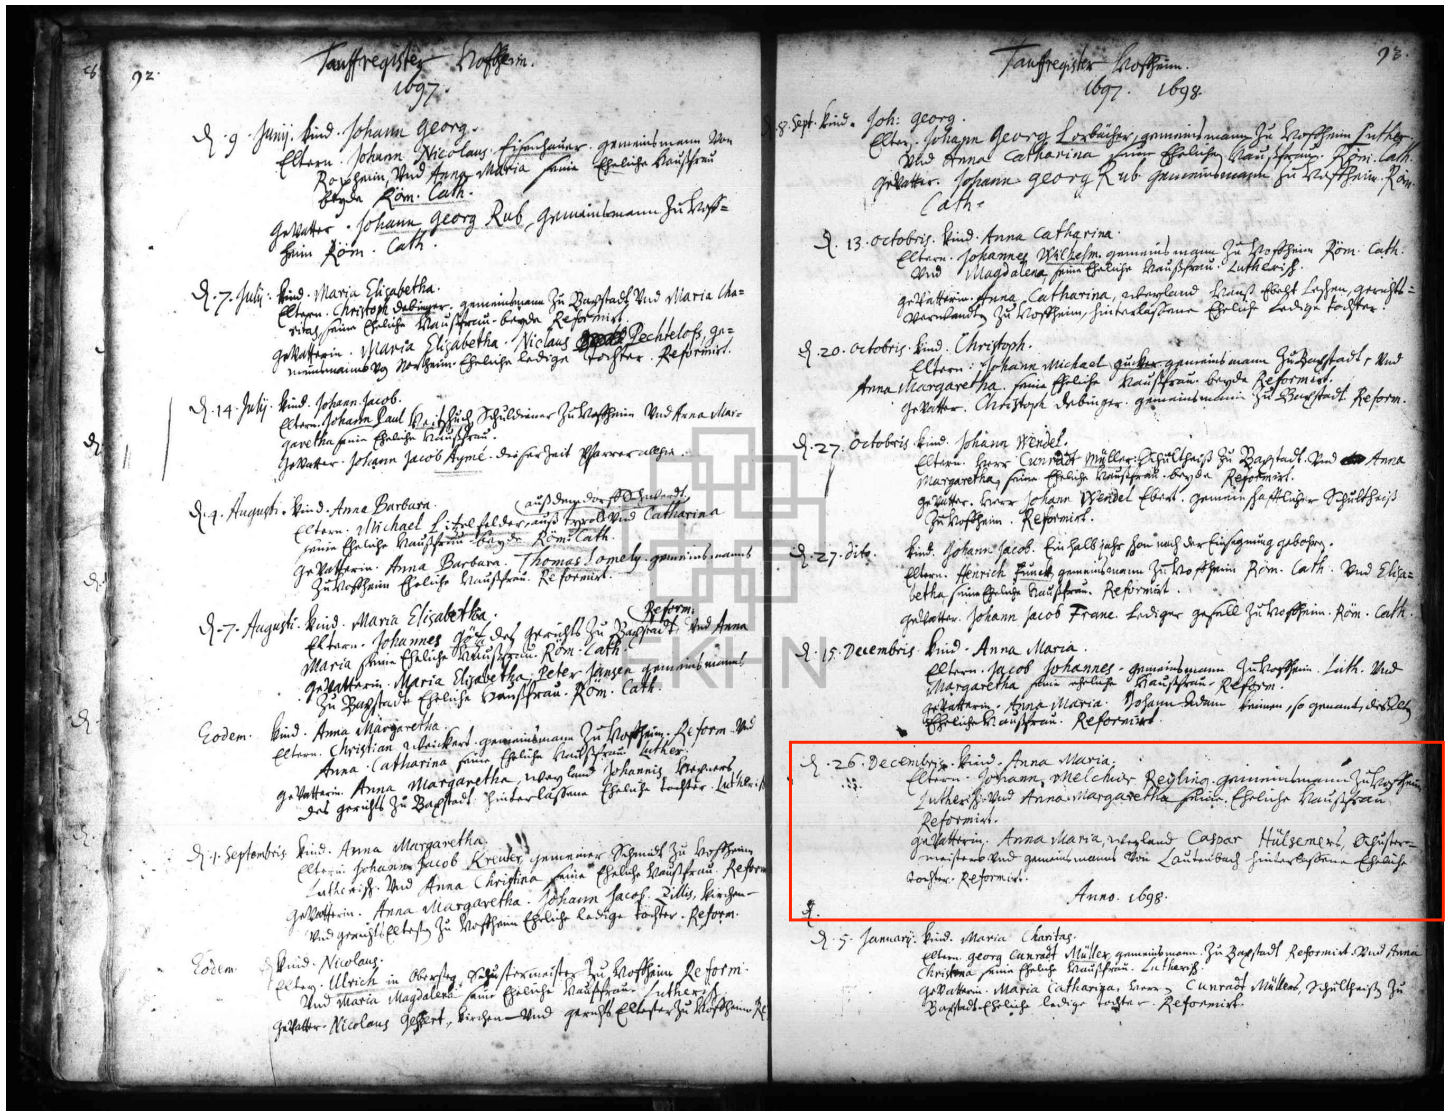 92.
Tauffregister Hofheim.
1697.
D. 9 Junij. kind. Johann Georg.
Eltern. Johann Nicolaus Eisenhauer. gemeinsmann von
Roxheim, und Anna Maria seine Eheliche haußfrau
beyde Röm. Cath.
Gevatter. Johann Georg Rub, gemeinsmann zu Hoff=
heim Röm. Cath.
D. 7. Julij. kind. Maria Elisabetha.
Eltern. Christoph Debinger. gemeinsmann zu Baxstadt und Maria Cha=
ritas, seine Eheliche Haußfrau. beyde Reformirt.
Gevatterin. Maria Elisabetha. Niclaus Pechteloss, ge=
meinsmanns Eheliche ledige tochter. Reformirt.
D. 14. Julij. kind. Johann Jacob.
Eltern. Johann Paul Schuldiener zu Hoffheim und Anna Mar=
garetha seine Eheliche haußfrau.
Gevatter. Johann Jacob Aymé. dieser Zeit Pfarrer
D. 4. Augusti. kind. Anna Barbara.
auß dem dorff Schwendt
Eltern. Michael auß tyroll und Catharina
seine Eheliche haußfrau. beyde Röm. Cath.
Gevatterin. Anna Barbara. Thomas gemeinsmanns
zu Hoffheim Eheliche haußfrau. Reformirt.
D. 7. Augusti. kind. Maria Elisabetha.
Reform.
Eltern. Johannes Götz des gerichts zu Baxstadt, und Anna
Maria seine Eheliche haußfrau. Röm. Cath.
Gevatterin. Maria Elisabetha, Peter Jansen gemeinsmanns
zu Baxstadt Eheliche haußfrau. Röm. Cath.
Eodem. kind. Anna Margaretha.
Eltern. Christian Weickert. gemeinsmann zu Hoffheim. Reform. und
Anna Catharina seine Eheliche haußfrau Luther.
Gevatterin. Anna Margaretha, weyland Johannis
des gerichts zu Baxstadt. hinterlaßene Eheliche tochter. Lutherisch
D. 1. Septembris kind. Anna Margaretha.
Eltern Johann Jacob Kreuter, gemeiner Schmidt zu Hoffheim
Lutherisch. und Anna Christina seine Eheliche haußfrau. Reform
Gevatterin. Anna Margaretha. Johann Jacob. Zillis, Kirchen=
und gerichts Eltesten zu Hoffheim Eheliche ledige tochter. Reform.
Eodem kind. Nicolaus.
Eltern. Ulrich in Obersteg, Schustermeister zu Hoffheim Reform.
und Maria Magdalena. seine Eheliche haußfrau. Lutherisch
Gevatter. Nicolaus Gebert, Kirchen= und gerichts Eltester zu Hoffheim Re
93.
Tauffregister Hoffheim.
1697. 1698
8. Sept. kind. Joh: Georg.
Eltern. Johann Georg Lorbächer, gemeinsmann zu Hoffheim Luther.
und Anna Catharina seine Eheliche haußfrau. Röm. Cath.
Gevatter. Johann Georg Rub gemeinsmann zu Hoffheim. Röm.
Cath.
D. 13. Octobris. kind. Anna Catharina.
Eltern. Johannes Wilhelm. gemeinsmann zu Hoffheim Röm. Cath.
und Magdalena, seine Eheliche haußfrau. Lutherisch.
Gevatterin. Anna Catharina, weyland Hanß gerichts=
verwandten zu Hoffheim, hinterlaßene Eheliche ledige tochter.
D. 20. Octobris. kind. Christoph.
Eltern. Johann Michael gemeinsmann zu Baxstadt, und
Anna Margaretha. seine Eheliche haußfrau. beyde Reformirt.
Gevatter. Christoph Debinger. gemeinsmann zu Baxstadt. Reform.
D. 27. Octobris kind. Johann Wendel.
Eltern. Herr Cunradt Müller. Schultheiß zu Baxstadt. und Anna
Margaretha, seine Eheliche haußfrau. beyde Reformirt.
Gevatter. Herr Johann Wendel Ebert. gemeinschafftlicher Schultheiß
zu Hoffheim. Reformirt.
D. 27. dito. kind. Johann Jacob. Ein halb jahr schon nach der Einsegnung gebohren.
Eltern. Henrich Funck gemeinsmann zu Hoffheim Röm. Cath. und Elisa=
betha seine Eheliche haußfrau. Reformirt.
Gevatter. Johann Jacob Franc. Lediger gesell zu Hoffheim. Röm. Cath.
D. 15. Decembris kind. Anna Maria.
Eltern. Jacob Johannes. gemeinsmann zu Hoffheim. Luth. und
Margaretha seine eheliche haußfrau. Reform.
Gevatterin. Anna Maria. Johann Adam so genant,
Eheliche haußfrau. Reformirt.
D. 26. Decembris. kind. Anna Maria.
Eltern. Johann Melchior Reyling. gemeinsmann zu Hoffheim
Lutherisch und Anna Margaretha seine Eheliche haußfrau
Reformirt.
Gevatterin. Anna Maria, weyland Caspar Hülsemers, Schuster=
meisters und gemeinsmanns von Lautenbach hinterlaßene Eheliche
tochter. Reformirt.
Anno. 1698.
D.
D. 5. January. kind. Maria Charitas.
Eltern. Georg Cunradt Müller, gemeinsmann. zu Baxstadt Reformirt. und Anna
Christina seine Eheliche haußfrau. Lutherisch.
Gevatterin. Maria Catharina, Herrn Cunradt Müllers, Schultheiß zu
Baxstadt Eheliche ledige tochter. Reformirt.
EKHN